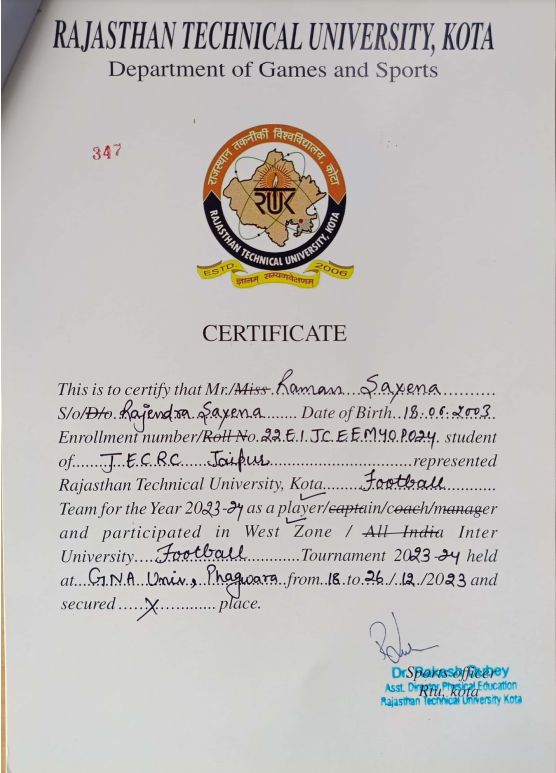 RAJASTHAN TECHNICAL UNIVERSITY, KOTA
Department of Games and Sports
347
राजस्थान तकनीकी विश्वविद्यालय, कोटा
RAJASTHAN TECHNICAL UNIVERSITY, KOTA
ESTD. 2006
ज्ञानम् सम्यगवेक्षणम्
CERTIFICATE
This is to certify that Mr./Miss Raman Saxena
S/o/D/o. Rajendra Saxena Date of Birth 18.06.2003
Enrollment number/Roll No. 22EIJCEEM40P024 student
of J.E.C.R.C Jaipur represented
Rajasthan Technical University, Kota Football
Team for the Year 2023-24 as a player/captain/coach/manager
and participated in West Zone / All India Inter
University Football Tournament 2023-24 held
at G.N.A. Univ., Phagwara from 18 to 26/12/2023 and
secured X place.
Dr. Rakesh Dubey
Sports officer
Asst. Director Physical Education
Rtu, kota
Rajasthan Technical University Kota